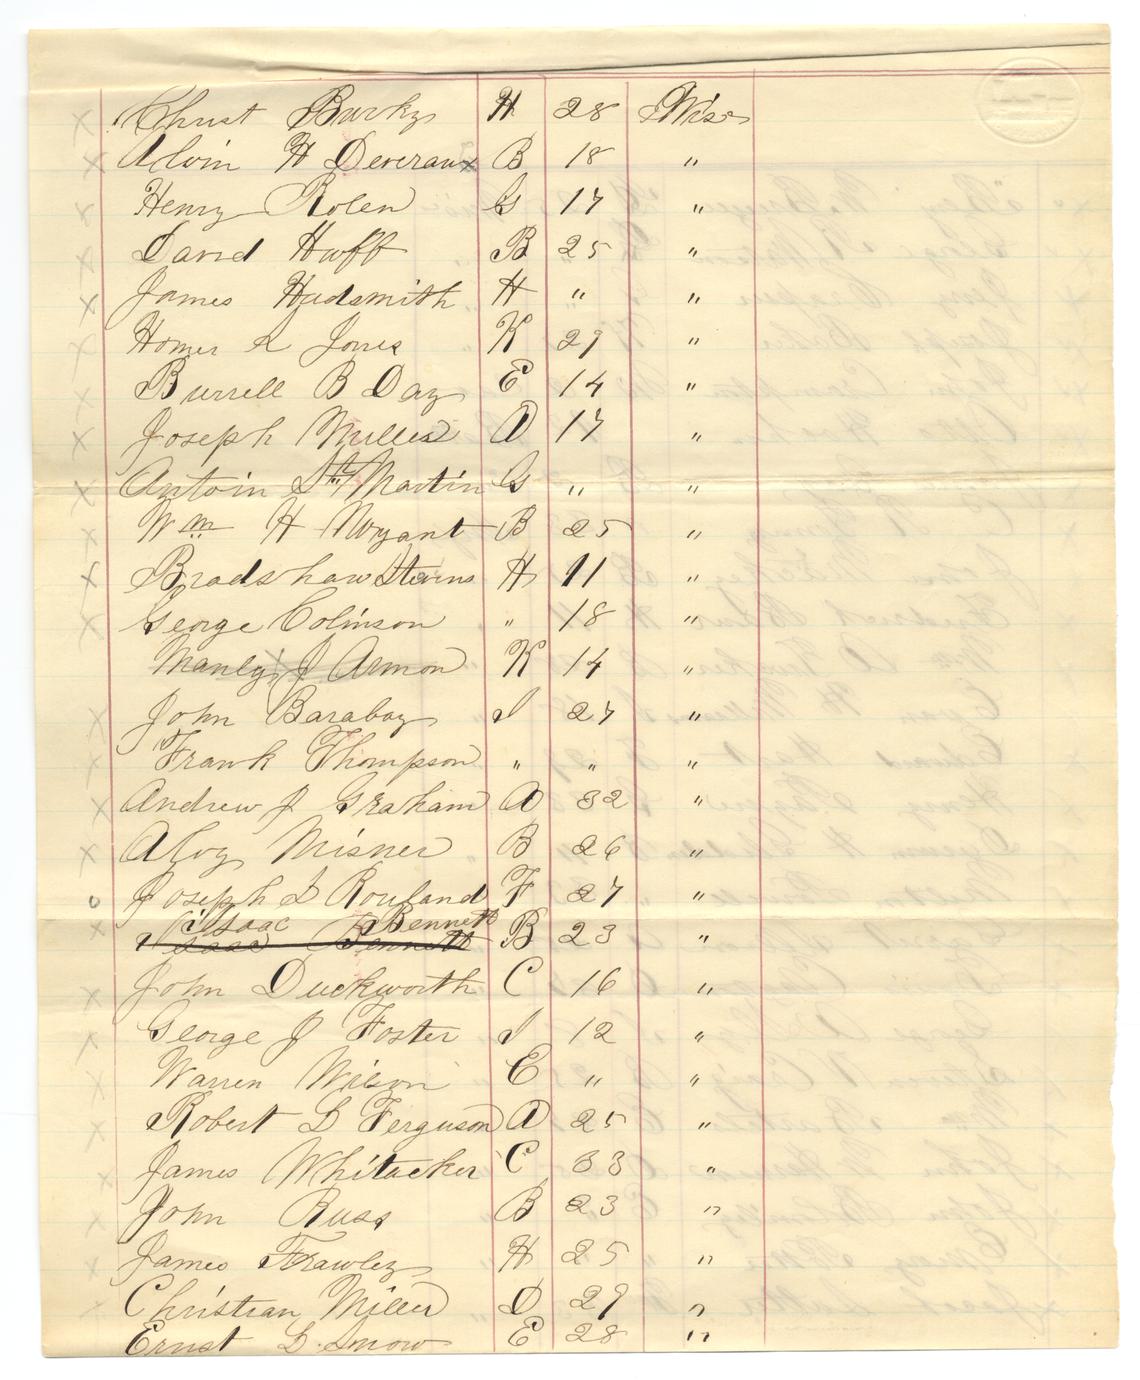 Christ Burky H 28 Wis
Alvin H Deveraux B 18 "
Henry Rolen G 17 "
David Huff B 25 "
James Hadsmith H " "
Homer A Jones K 29 "
Burrell B Day E 14 "
Joseph Miller A 17 "
Antoin St Martin G " "
Wm H Noyant B 25 "
Bradshaw Stevens H 11 "
George Colinson " 18 "
Manley J Armon K 14 "
John Barabay I 27 "
Frank Thompson " " "
Andrew J Graham A 32 "
Aloy Misner B 26 "
Joseph L Rowland F 27 "
Isaac Bennett
Isaac Bennett B 23 "
John Duckworth C 16 "
George J Foster I 12 "
Warren Wilson E " "
Robert L Ferguson A 25 "
James Whitacker C 33 "
John Russ B 23 "
James Frawley H 25 "
Christian Miller D 29 "
Ernst L. Snow E 28 "